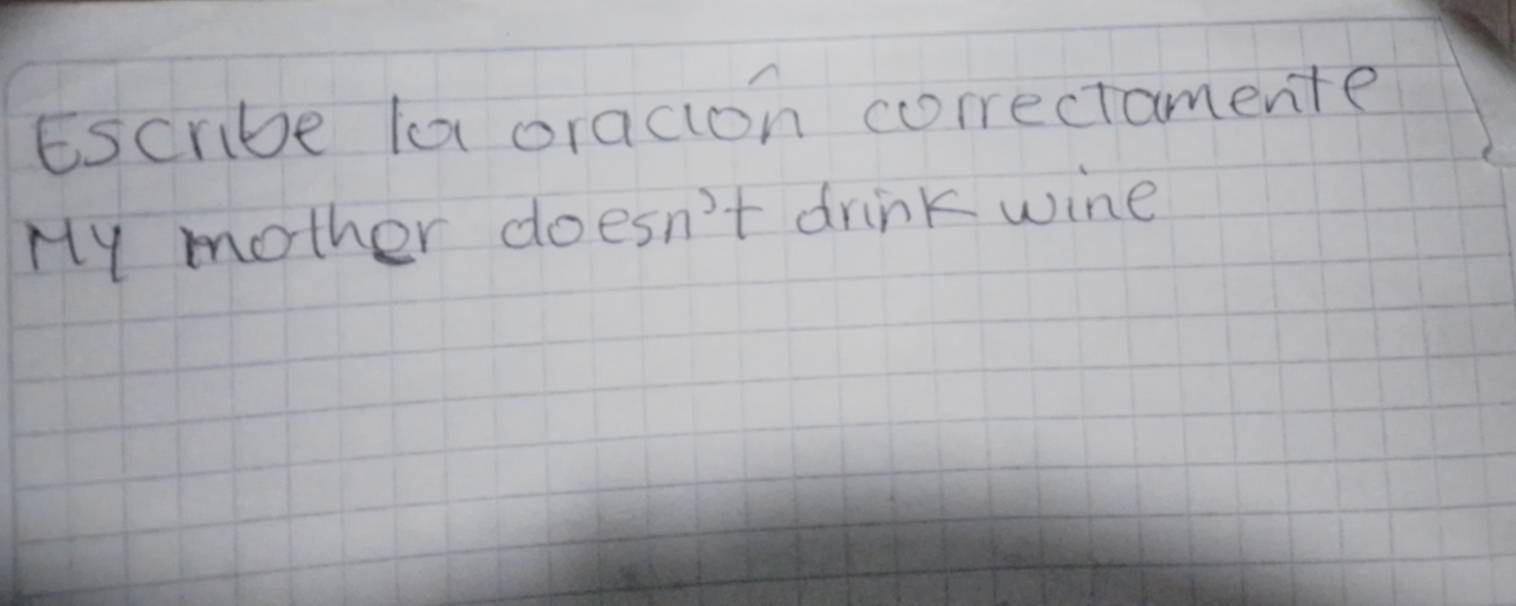 Escribe la oración correctamente
My mother doesn't drink wine